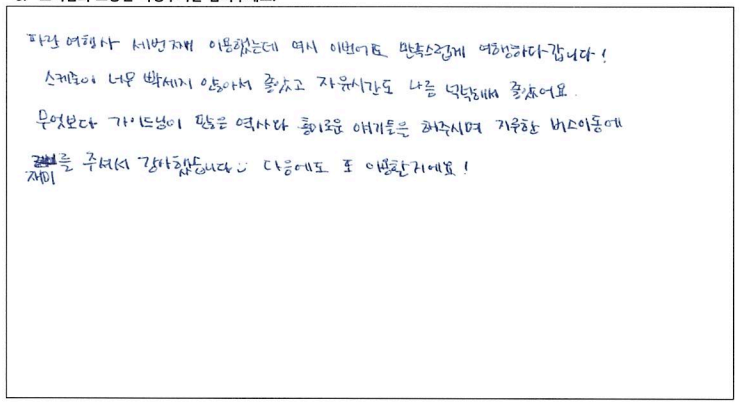 파란여행사 세번째 이용했는데 역시 이번에도 만족스럽게 여행하다 갑니다!
스케줄이 너무 빡세지 않아서 좋았고 자유시간도 나름 넉넉해서 좋았어요.
무엇보다 가이드님이 많은 역사와 흥미로운 얘기들을 해주시며 지루한 버스이동에
재미를 주셔서 감사했습니다 :) 다음에도 또 이용할거에요!